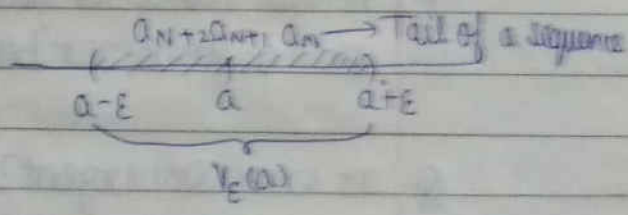 aN+2 aN+1 am → Tail of a sequence
a-ε a a+ε
Vε(a)